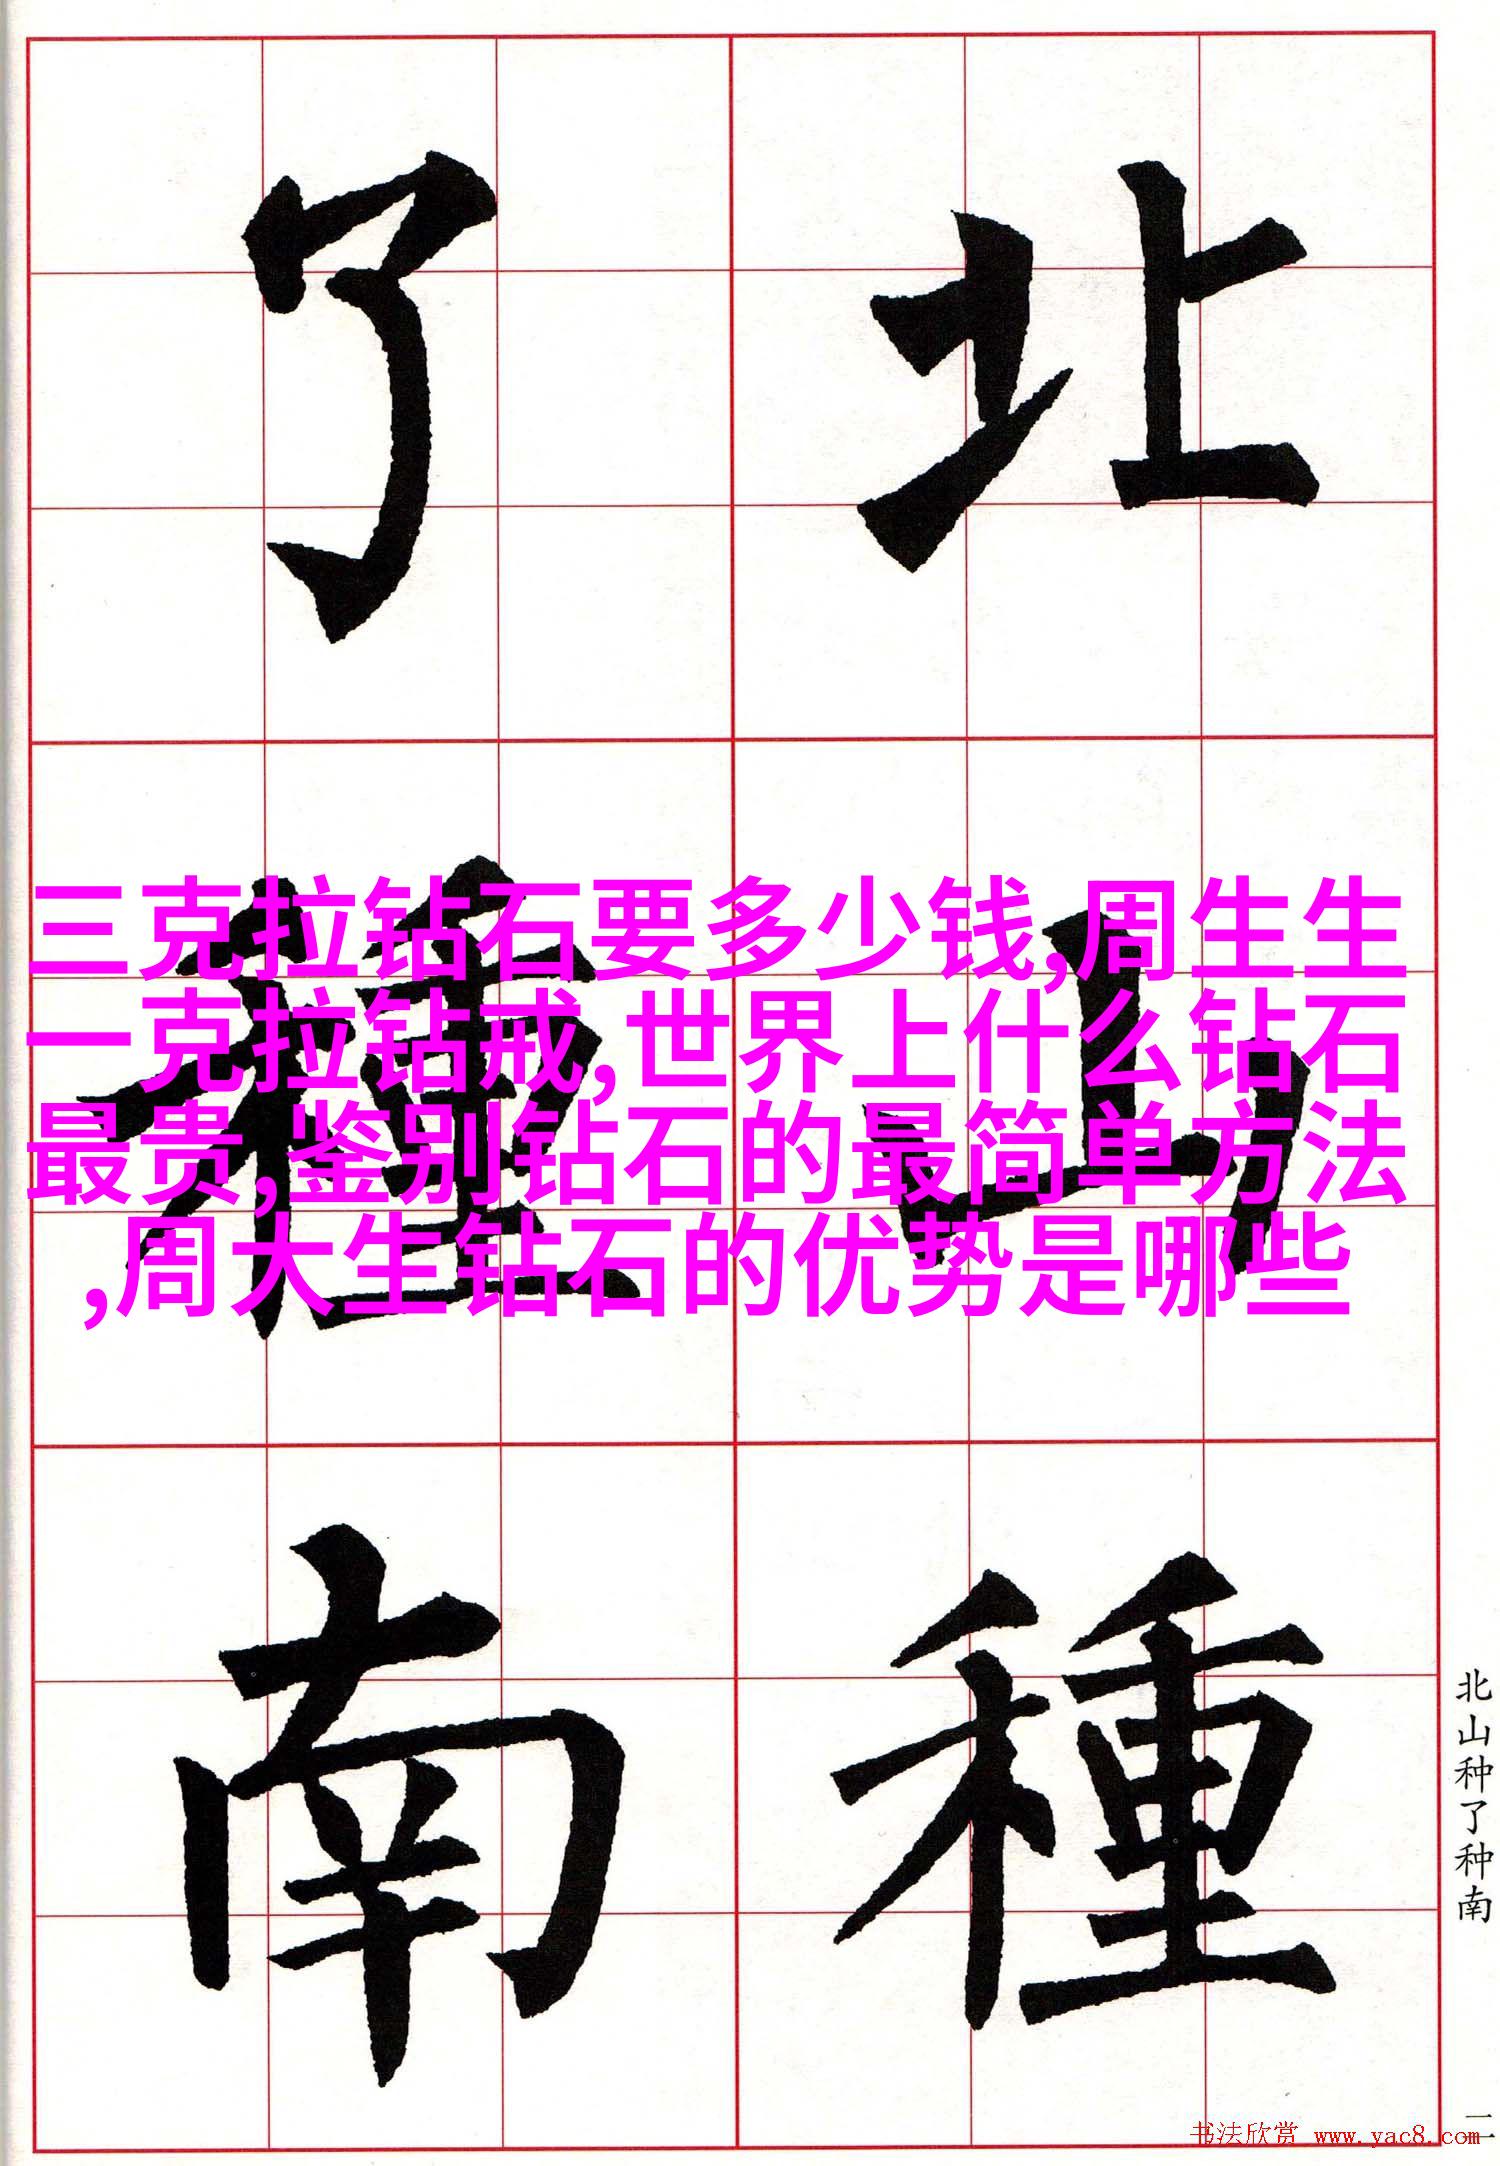 北山種
了種南
三克拉钻石要多少钱,周生生
一克拉钻戒,世界上什么钻石
最贵,鉴别钻石的最简单方法
,周大生钻石的优势是哪些
北山种了种南
二
书法欣赏 www.yac8.com